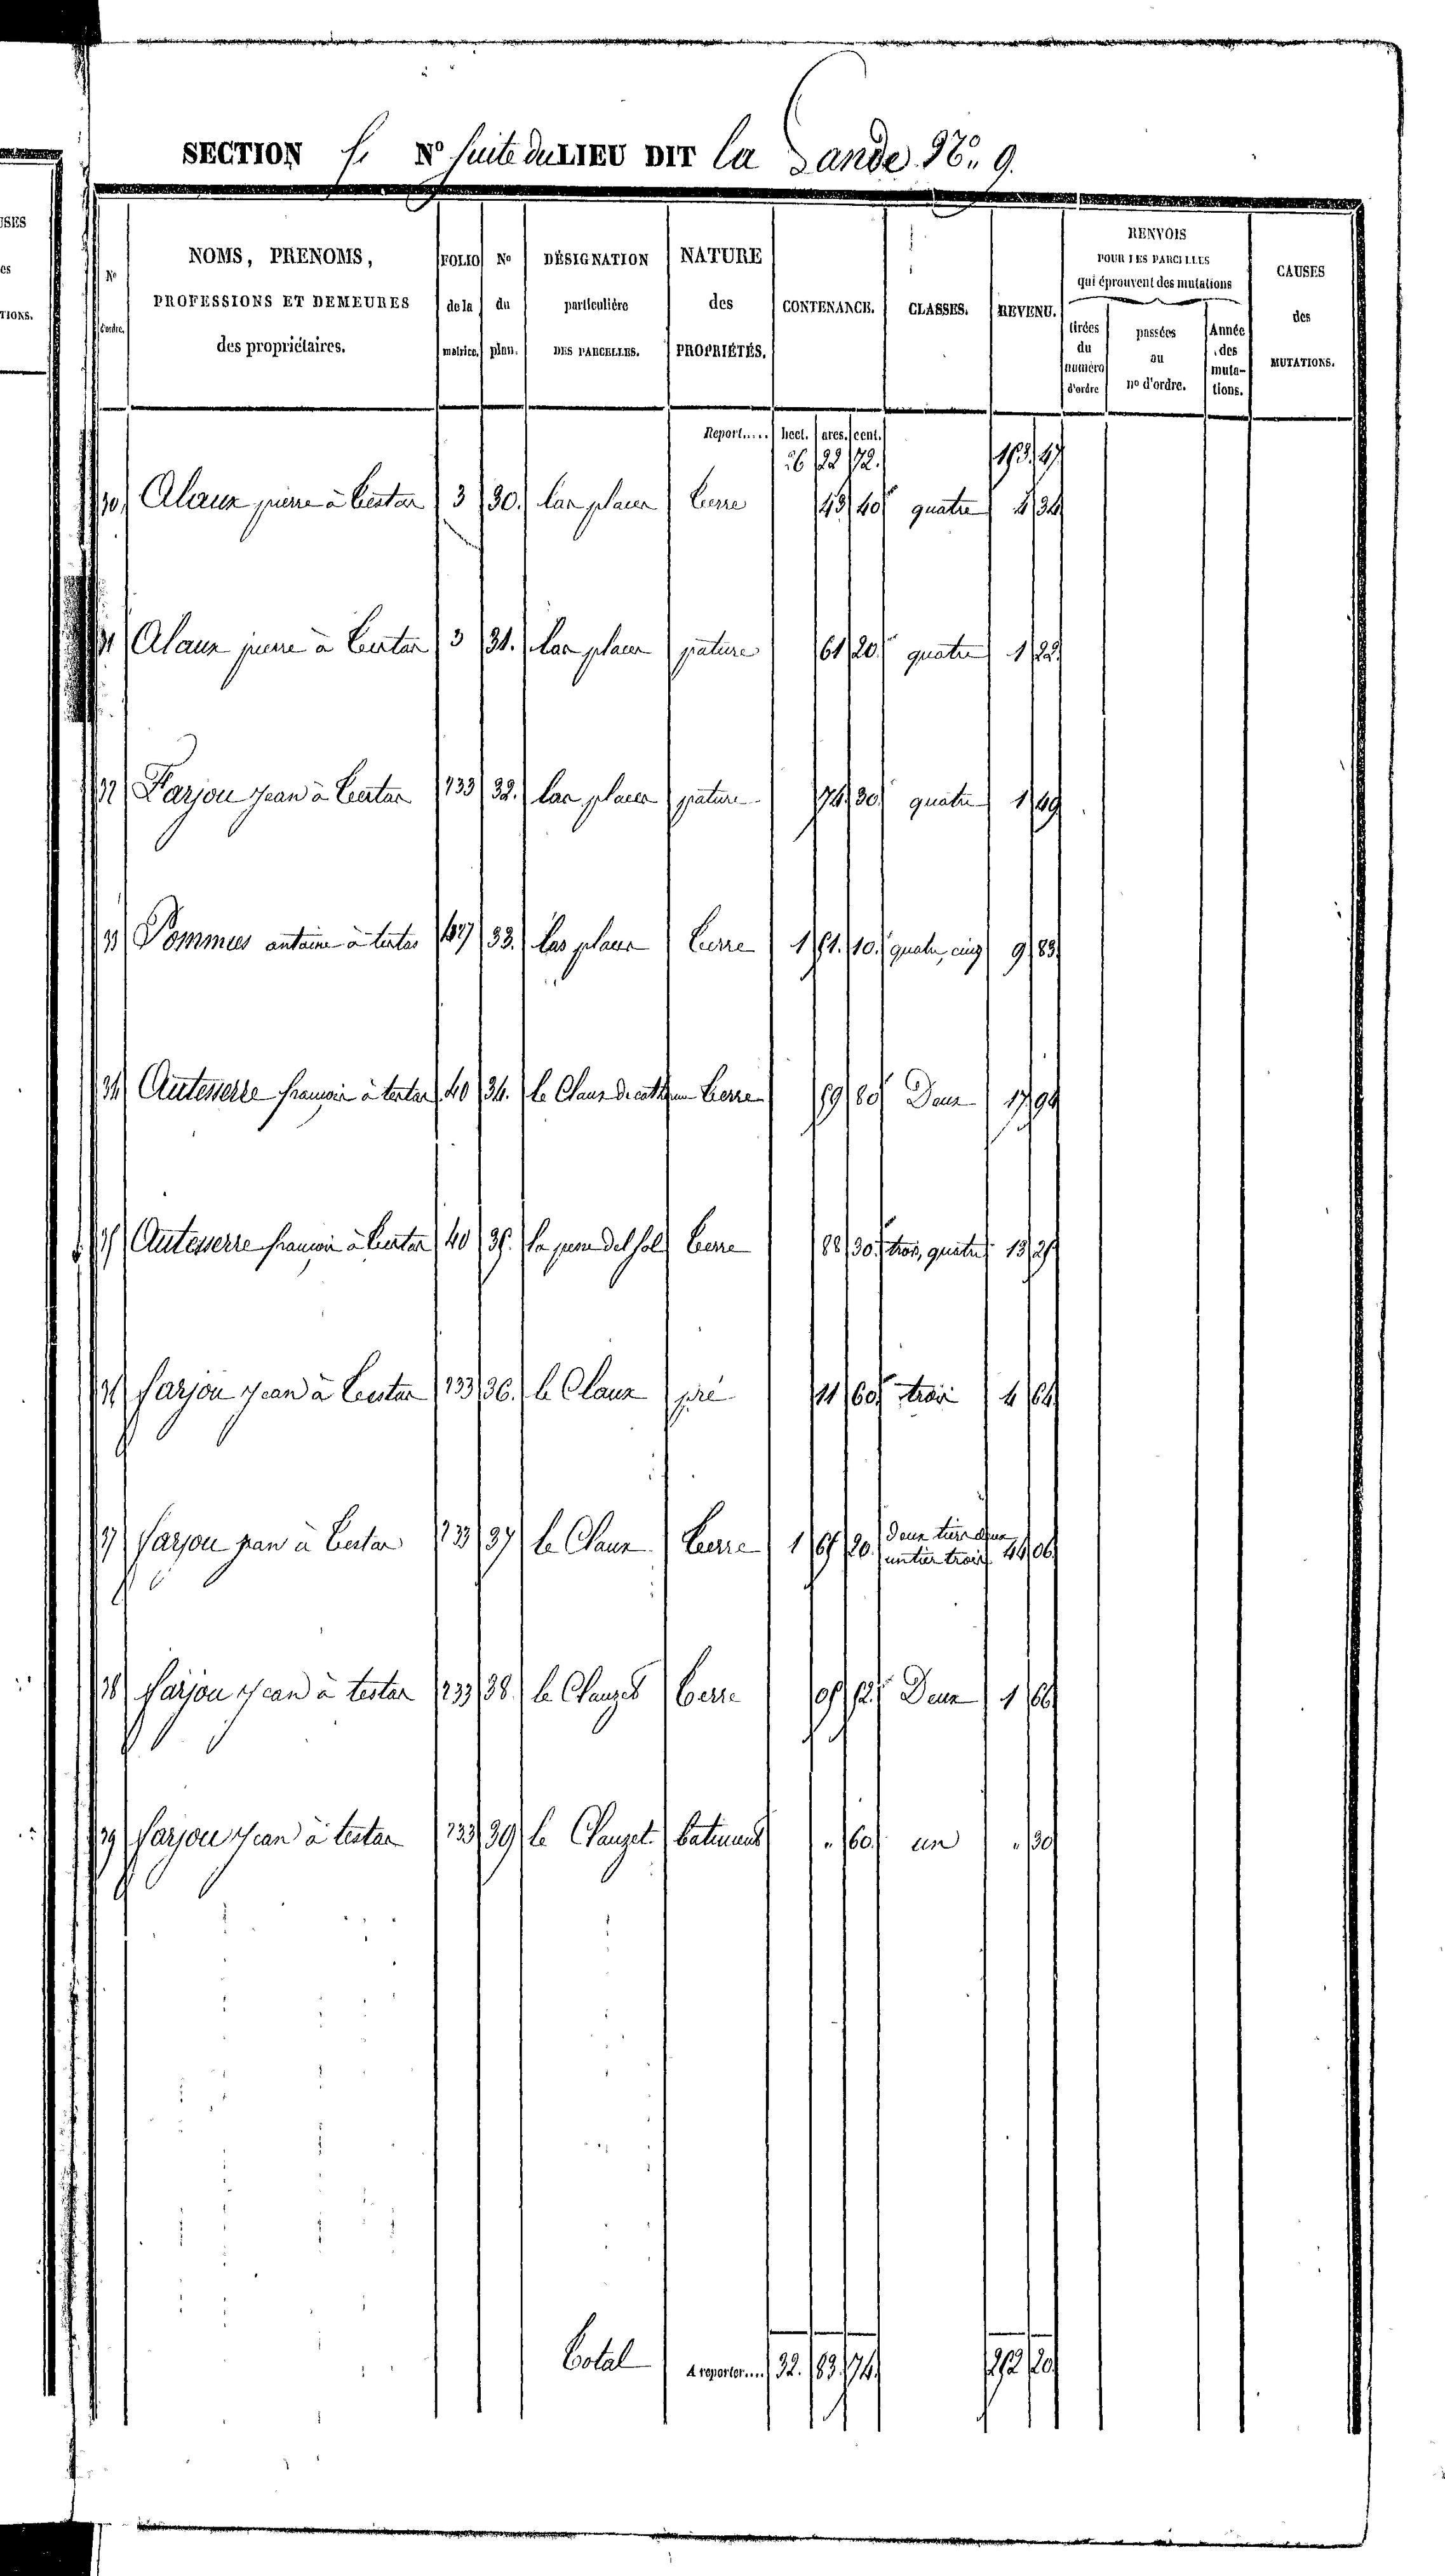 SECTION f. No suite du LIEU DIT la Lande No. 9.
No d'ordre.
NOMS, PRENOMS, PROFESSIONS ET DEMEURES des propriétaires.
FOLIO de la matrice.
No du plan.
DÉSIGNATION particulière DES PARCELLES.
NATURE des PROPRIÉTÉS.
CONTENANCE.
CLASSES.
REVENU.
RENVOIS POUR LES PARCELLES qui éprouvent des mutations
tirées du numéro d'ordre
passées au no d'ordre.
Année des mutations.
CAUSES des MUTATIONS.
Report..... hect. ares. cent.
26 22 72. 193. 47
30 Alaux pierre à testar 3 30. las places terre 43 40 quatre 4 34
31 Alaux pierre à testar 3 31. las places pature 61 20. quatre 1 22
32 Farjou jean à testar 133 32. las places pature 74. 30. quatre 1 49
33 Pommies antoine à testar 33. las places terre 1 51. 10. quatre, cinq 9 83
34 Autesserre françois à testar 40 34. le Claux terre 59 80 Deux 17 94
35 Autesserre françois à testar 40 35. la del sol terre 88 30. trois, quatre 13 25
36 farjou jean à testar 133 36. le Claux pré 11 60 trois 4 64
37 farjou jean à testar 133 37 le Claux terre 1 65 20. deux tiers deux un tier trois 44 06
38 farjou jean à testar 133 38. le Clauzet terre 05 52 Deux 1 66
39 farjou jean à testar 133 39 le Clauzet. batiment " 60. un " 30
Total A reporter.... 32. 83. 74. 292 20